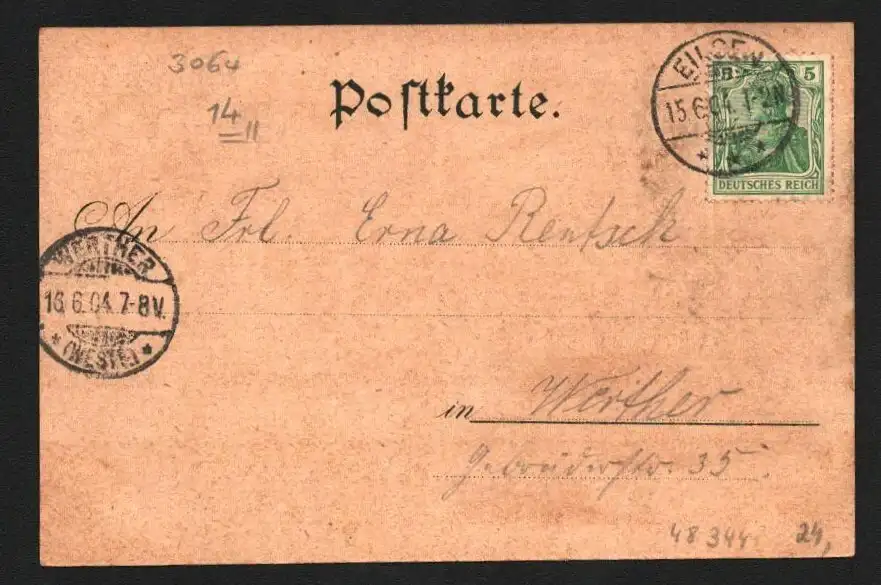 3064
14
II
Postkarte.
EILSEN
15.6.04. 1-2N
5
DEUTSCHES REICH
An Frl. Erna Rentsch
WERTHER
16.6.04. 7-8V.
(WESTF.)
in Werther
35
48344 24,